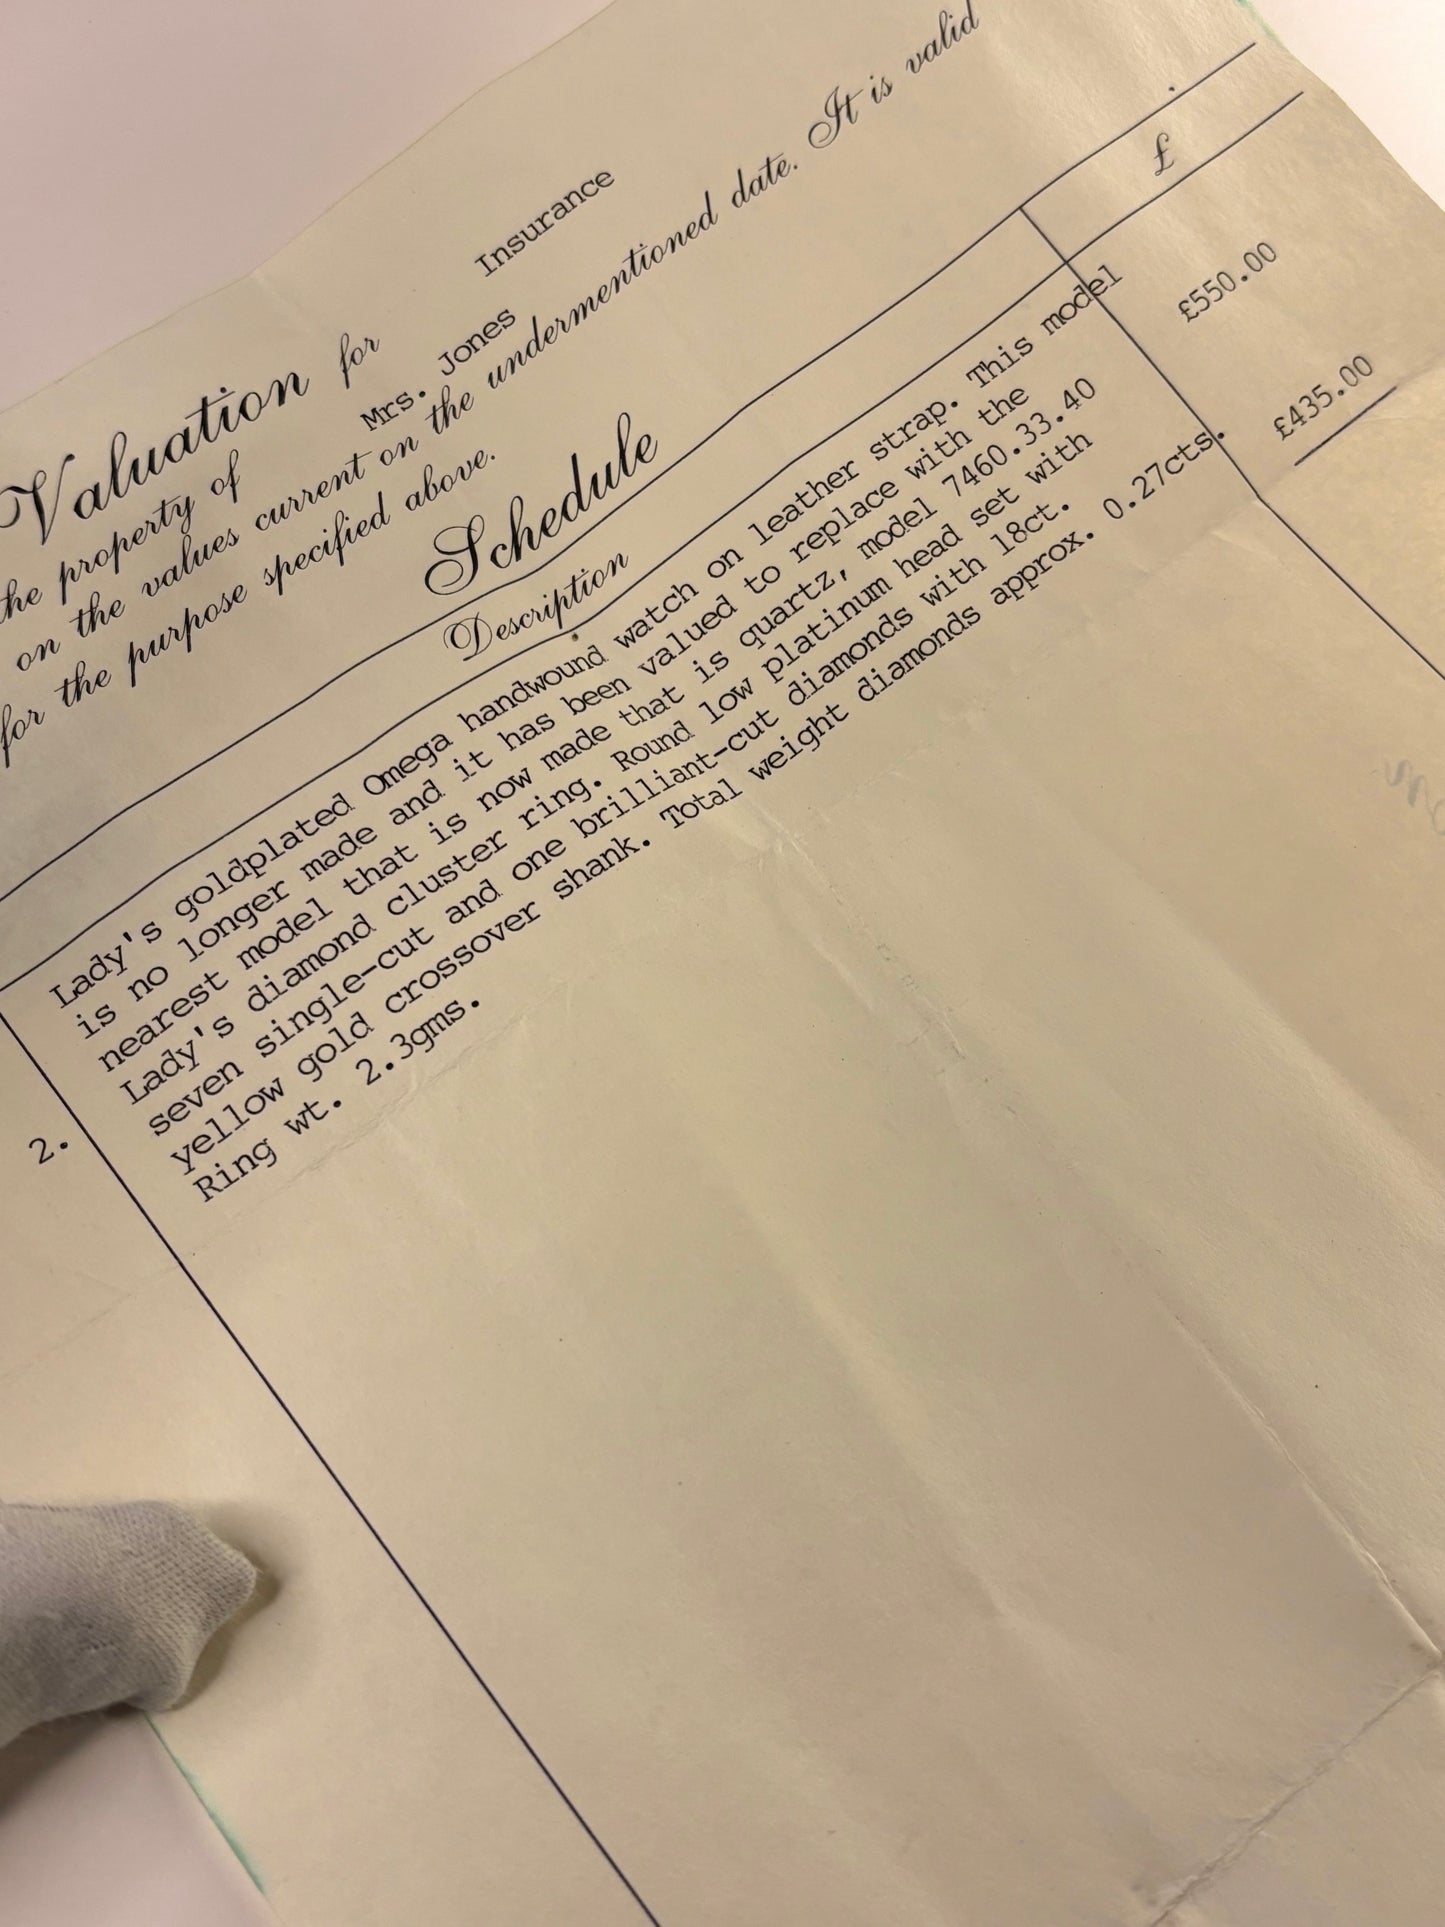 Valuation for Insurance
the property of Mrs. Jones
on the values current on the undermentioned date. It is valid
for the purpose specified above.
Schedule
Description £
Lady's goldplated Omega handwound watch on leather strap. This model £550.00
is no longer made and it has been valued to replace with the
nearest model that is now made that is quartz, model 7460.33.40
2. Lady's diamond cluster ring. Round low platinum head set with £435.00
seven single-cut and one brilliant-cut diamonds with 18ct.
yellow gold crossover shank. Total weight diamonds approx. 0.27cts.
Ring wt. 2.3gms.